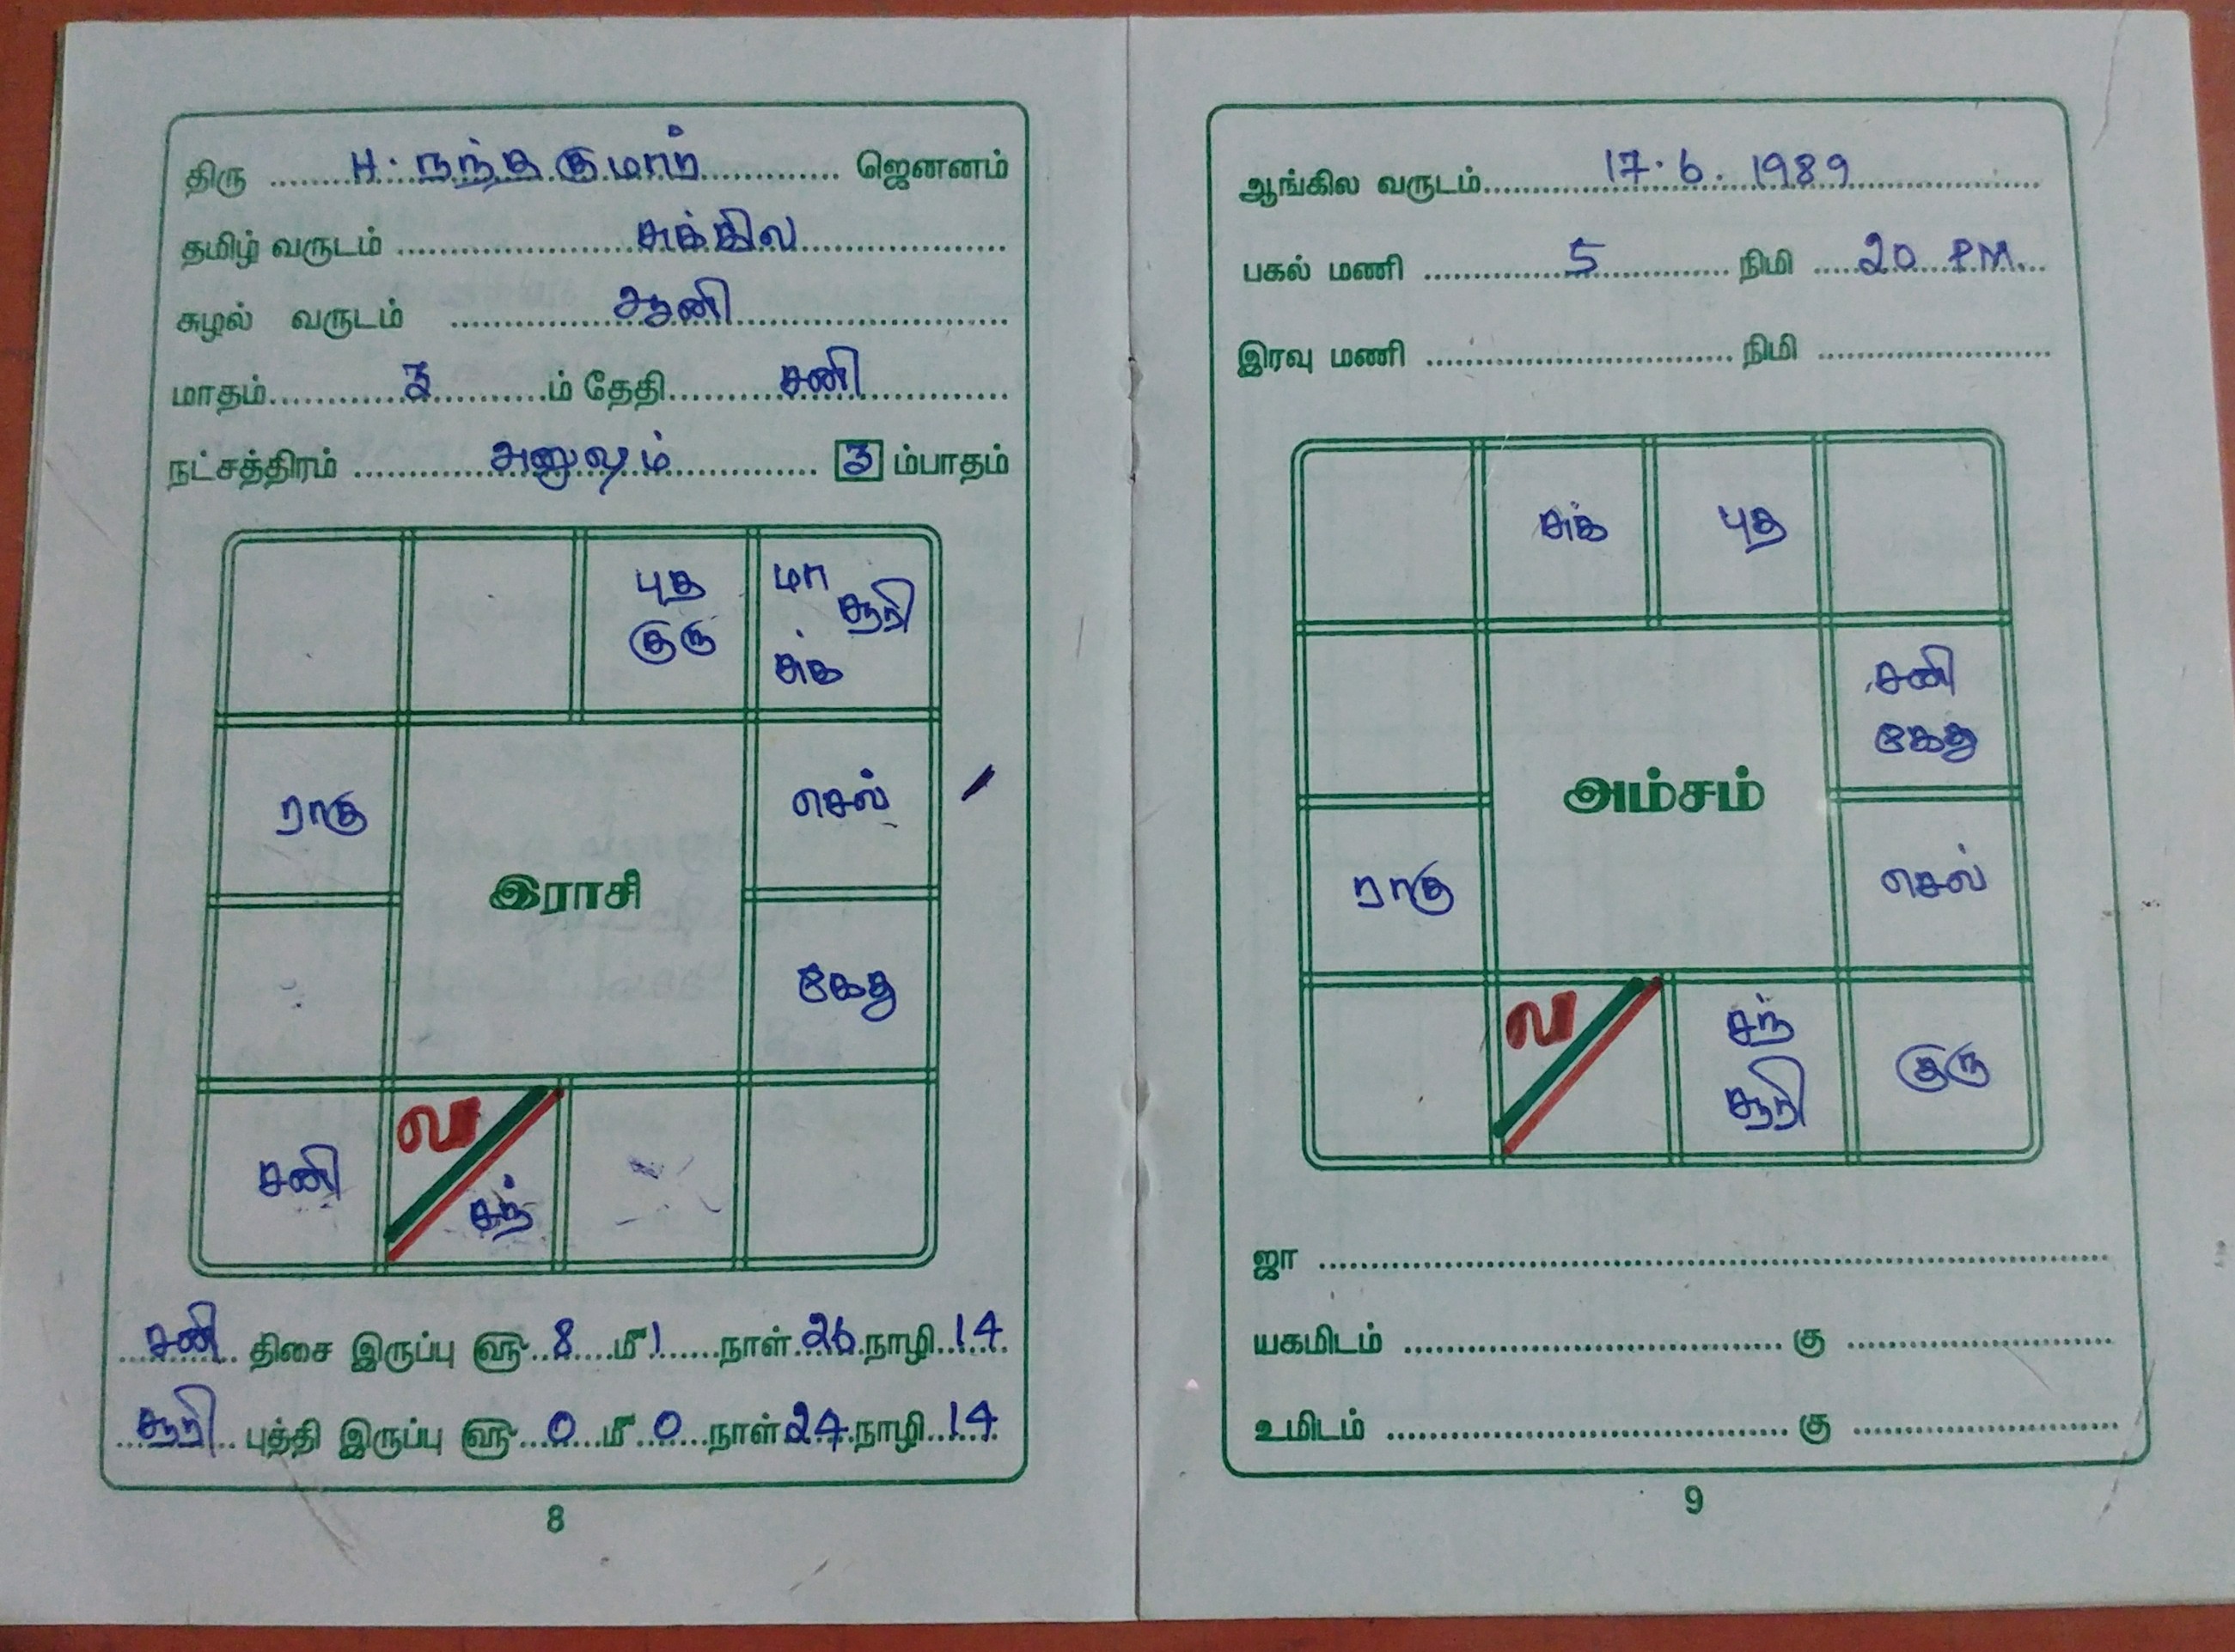 திரு H. நந்தகுமார் ஜெனனம்
தமிழ் வருடம் சுக்கில
சுழல் வருடம் ஆனி
மாதம் 3 ம் தேதி சனி
நட்சத்திரம் அனுஷம் 3 ம்பாதம்
புத குரு
மா சூரி சுக்
ராகு
செல்
இராசி
கேது
சனி
ல
சந்
சனி திசை இருப்பு ௵ 8 ௴ 1 நாள் 26 நாழி 14
சூரி புத்தி இருப்பு ௵ 0 ௴ 0 நாள் 24 நாழி 14
8
ஆங்கில வருடம் 17.6.1989
பகல் மணி 5 நிமி 20 PM.
இரவு மணி நிமி
சுக்
புத
சனி கேது
அம்சம்
ராகு
செல்
ல
சந் சூரி
குரு
ஜா
யகமிடம் கு
உமிடம் கு
9